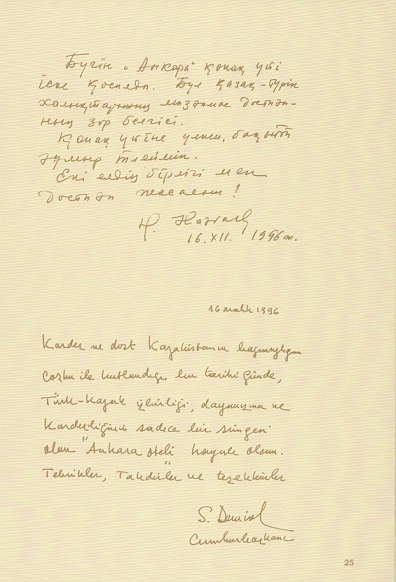 Бүгін „Анкара" қонақ үйі
іске қосылды. Бұл қазақ-түрік
халықтарының мызғымас достығы-
ның зор белгісі.
Қонақ үйіне үлкен, бақытты
ғұмыр тілеймін.
Екі елдің бірлігі мен
достығы жасасын!
Н. Назарб
16.XII. 1996 ж.
16 aralık 1996
Kardeş ve dost Kazakistanın bağımsızlığının
coşku ile kutlandığı bu tarihi günde,
Türk-Kazak işbirliği, dayanışma ve
Kardeşliğinin sadece bir simgesi
olan "Ankara oteli" hayırlı olsun.
Tebrikler, Takdirler ve teşekkürler
S. Demirel
Cumhurbaşkanı
25